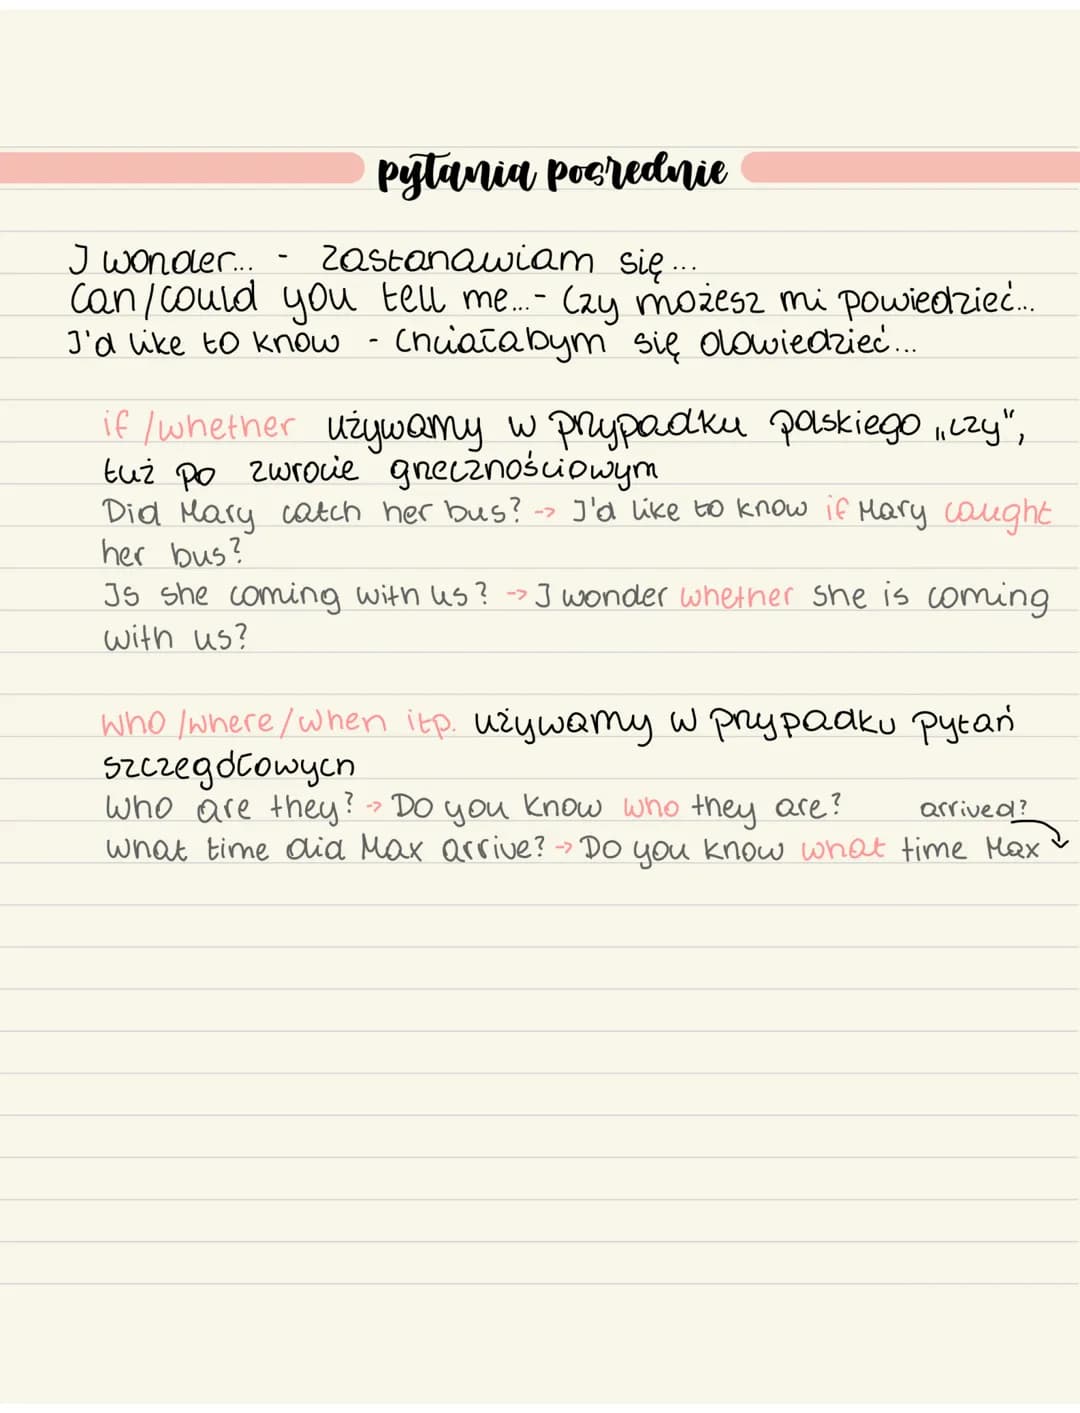 pytania pośrednie
I wonder... - zastanawiam się...
Can/could you tell me...- Czy możesz mi powiedzieć...
I'd like to know - Chciałabym się dowiedzieć...
if /whether używamy w przypadku polskiego „czy",
tuż po zwrocie grzecznościowym
Did Mary catch her bus? -> I'd like to know if Mary caught
her bus?
Is she coming with us? -> I wonder whether she is coming
with us?
who /where/when itp. używamy w przypadku pytań
szczegółowych
Who are they? -> Do you know who they are?
arrived?
What time did Max arrive? -> Do you know what time Max